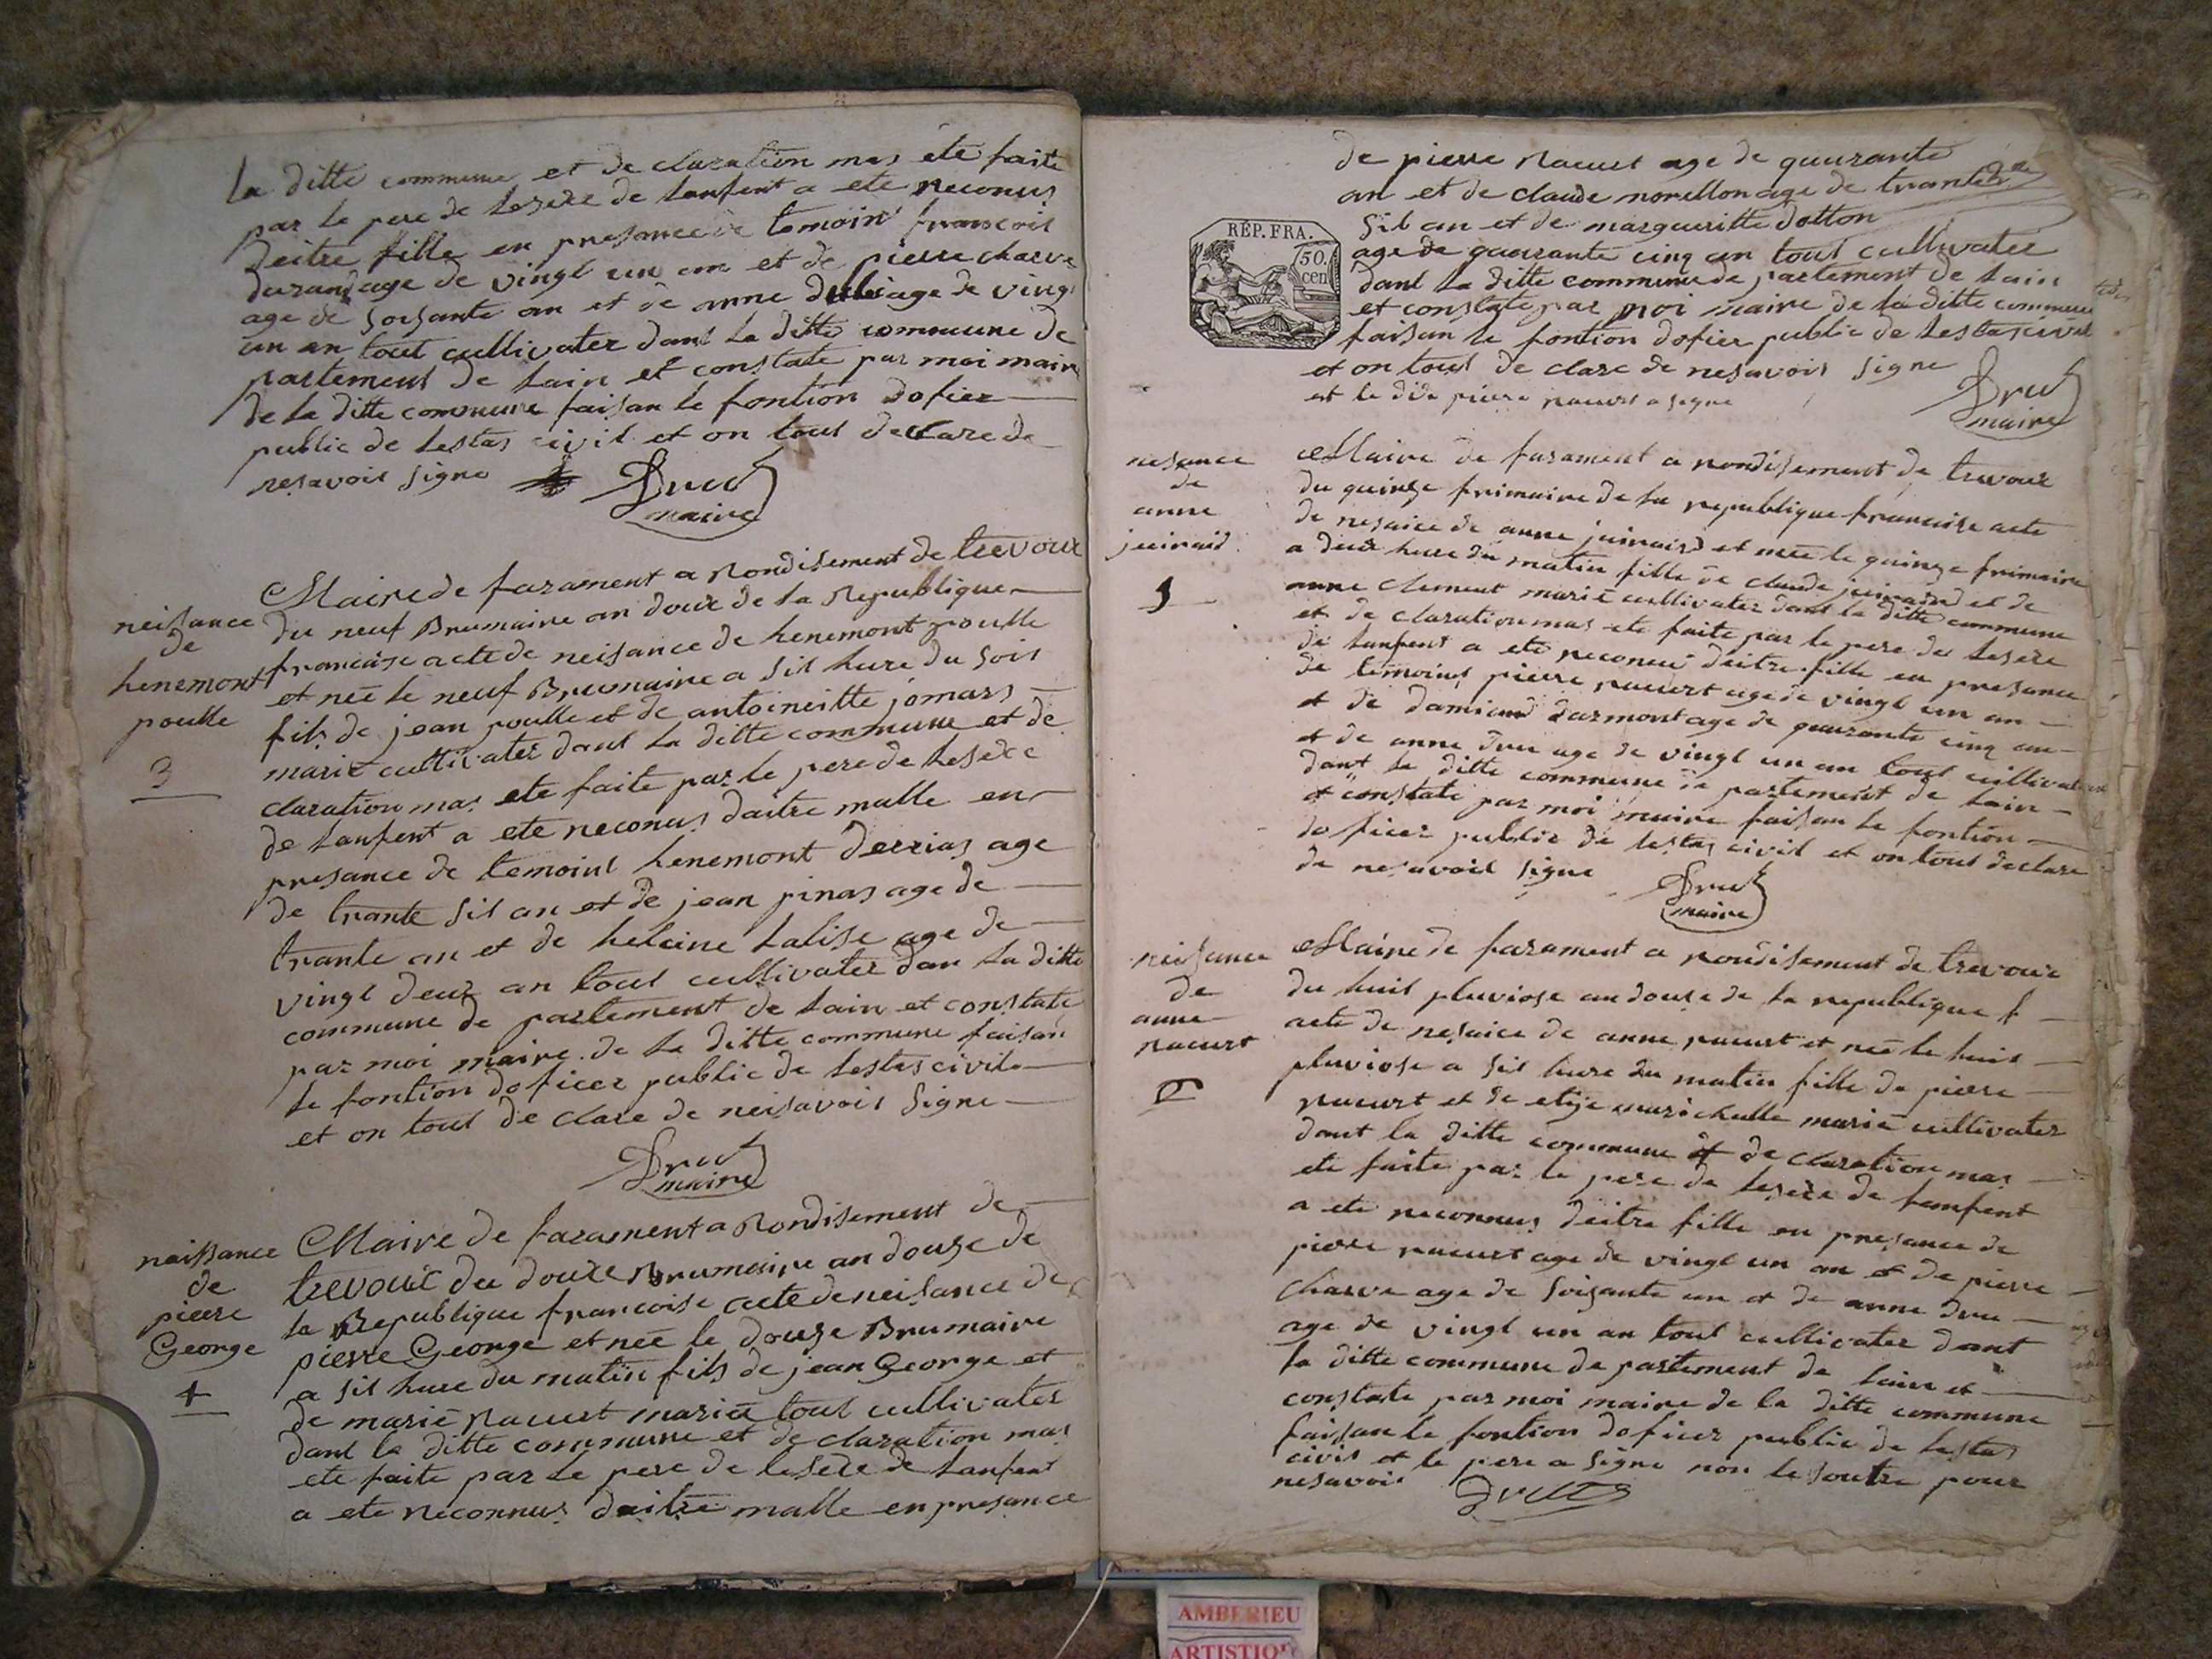 la ditte commune et de claration mas ete faite
par le pere de lesexe de lanfent a ete reconus
deitre fille en presance de temoin francois
durand age de vingt un an et de pierre charve
age de soisante an et de anne dubi age de vingt
un an tout cultivater dant la ditte commune de
partement de lain et constate par moi maire
de la ditte commune faisan le fontion dofier
public de lestas civil et on tout declare de
nesavoir signe
Drud
maire
neissance
de
henemont
poulle
3
Maire de farament a Rondisement de trevoux
du neuf Brumaire an douze de la Republique
francaise acte de neisance de henemont poulle
et neé le neuf Brumaire a sis hure du soir
fils de jean poulle et de antoineitte jomars
marié cultivater dant la ditte commune et de
claration mas ete faite par le pere de lesexe
de lanfent a ete reconus daitre malle en
presance de temoint henemont derrias age
de trante sis an et de jean pinas age de
trante an et de heleine lalise age de
vingt deux an tout cultivater dan la ditte
commune de partement de lain et constate
par moi maire de la ditte commune faisan
le fontion doficer public de lestas civil
et on tout de clare de neisavoir signe
Drud
maire
naissance
de
pierre
George
4
Maire de farament a Rondisement de
trevoux du douze Brumaire an douze de
la Republique francoise acte de neisance de
pierre George et neé le douze Brumaire
a sis hure du matin fils de jean George et
de marie Racurt marié tout cultivater
dant la ditte commune et de claration mas
ete faite par le pere de lesexe de lanfent
a ete reconnus daitre malle en presance
de pierre Racurt age de quarante
an et de claude morellon age de trante
sis an et de margueritte dotton
age de quarante cinq an tout cultivater
dant la ditte commune de partement de lain
et constate par moi maire de la ditte commune
faisan le fontion dofier public de lestas civil
et on tout de clare de nesavoir signe
et le dide pierre racurt a signe
Drud
maire
RÉP. FRA.
50.
cen
nesance
de
anne
juinaid
5
Maire de farament a rondisement de trevoux
du quinze frimaire de la republique francaise acte
de nesaice de anne juinaid et neé le quinze frimaire
a deux hure du matin fille de claude juinaid et de
anne clement marié cultivater dant la ditte commune
et de claration mas ete faite par le pere de lesexe
de lanfent a ete reconnu deitre fille en presance
de temoins pierre racurt age de vingt un an
et de damien darmont age de quarante cinq an
et de anne dru age de vingt un an tout cultivater
dant la ditte commune de partement de lain
et constate par moi maire faisan le fontion
do ficer public de lestas civil et on tout declare
de nesavoir signe
Drud
maire
neisance
de
anne
racurt
6
Maire de farament a rondisement de trevoux
du huit pluviose an douze de la republique f
acte de nesaice de anne racurt et neé le huit
pluviose a sis hure du matin fille de pierre
racurt et de elize marichelle marié cultivater
dant la ditte commune et de claration mas
ete faite par le pere de lesexe de lanfent
a ete reconnus deitre fille en presance de
pierre racurt age de vingt un an et de pierre
charve age de soisante an et de anne dru
age de vingt un an tout cultivater dant
la ditte commune de partement de lain et
constate par moi maire de la ditte commune
faisan le fontion doficer public de lestas
civil et le pere a signe non les outre pour
nesavoir
Drud
AMBERIEU
ARTISTIQUE